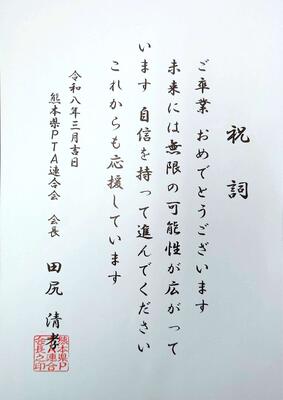 祝詞
ご卒業 おめでとうございます
未来には無限の可能性が広がって
います 自信を持って進んでください
これからも応援しています
令和八年三月吉日
熊本県PTA連合会 会長 田尻 清孝
熊本県P
TA連合
会長之印